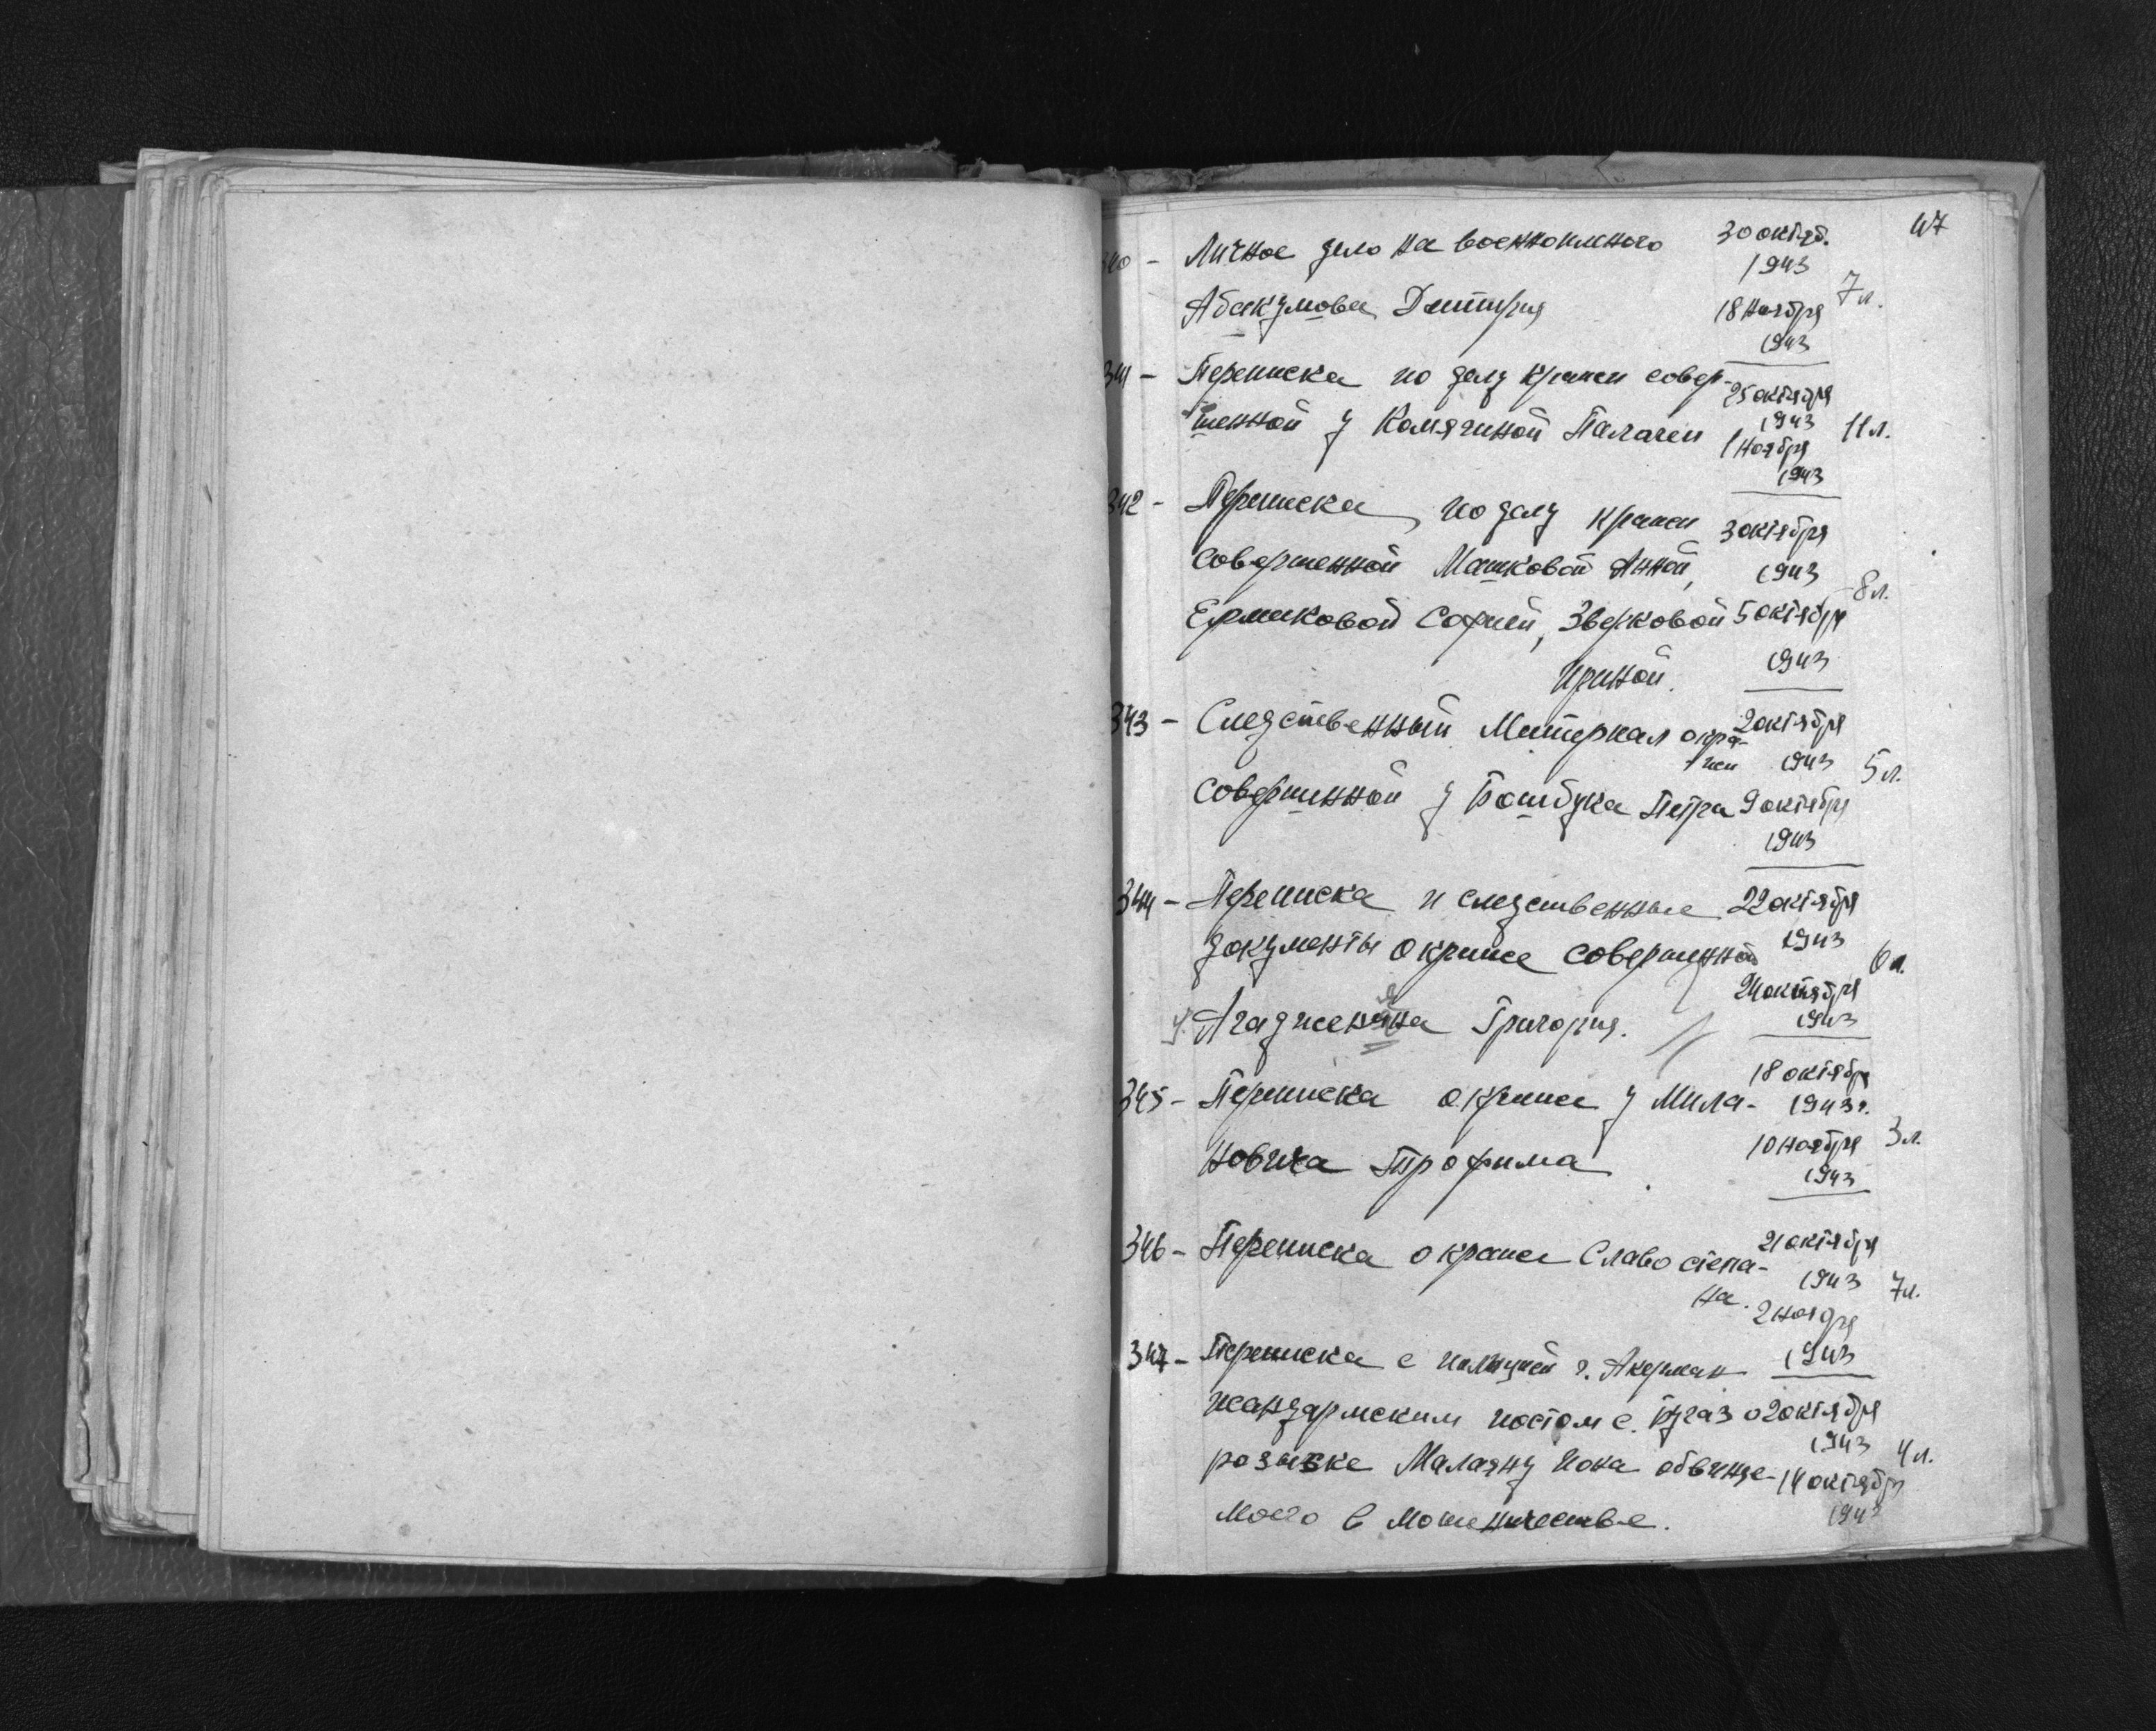 47
340 - Личное дело на военнопленого 30 октяб. 1943
Абакумова Дмитрия 18 Ноября 1943 7 л.
341 - Переписка по делу кражи совер- 25 октября 1943
шенной у Комягиной Палагеи 1 Ноября 1943 11 л.
342 - Переписка по делу кражи 3 октября
совершенной Машковой Анной, 1943 8 л.
Ермиковой Софией, Зверковой 5 октября
Ириной. 1943
343 - Следственный Материал о кра- 2 октября
жи 1943 5 л.
совершенной у Ботбука Петра 9 октября
1943
344 - Переписка и следственные 22 октября
документы о краже совершенной 1943 6 л.
24 октября
у Агадженяна Григория. 1943
18 октября
345 - Переписка о краже у Мила- 1943 г.
новича Трофима 10 Ноября 3 л.
1943
346 - Переписка о краже Славо степа- 21 октября
на. 1943 7 л.
2 Ноября
347 - Переписка с полицией г. Акерман 1943
жандармским постом с. Бугаз о 2 октября
1943 4 л.
розыске Малаяну Иона обвиняе- 14 октября
мого в мошеничестве. 1943